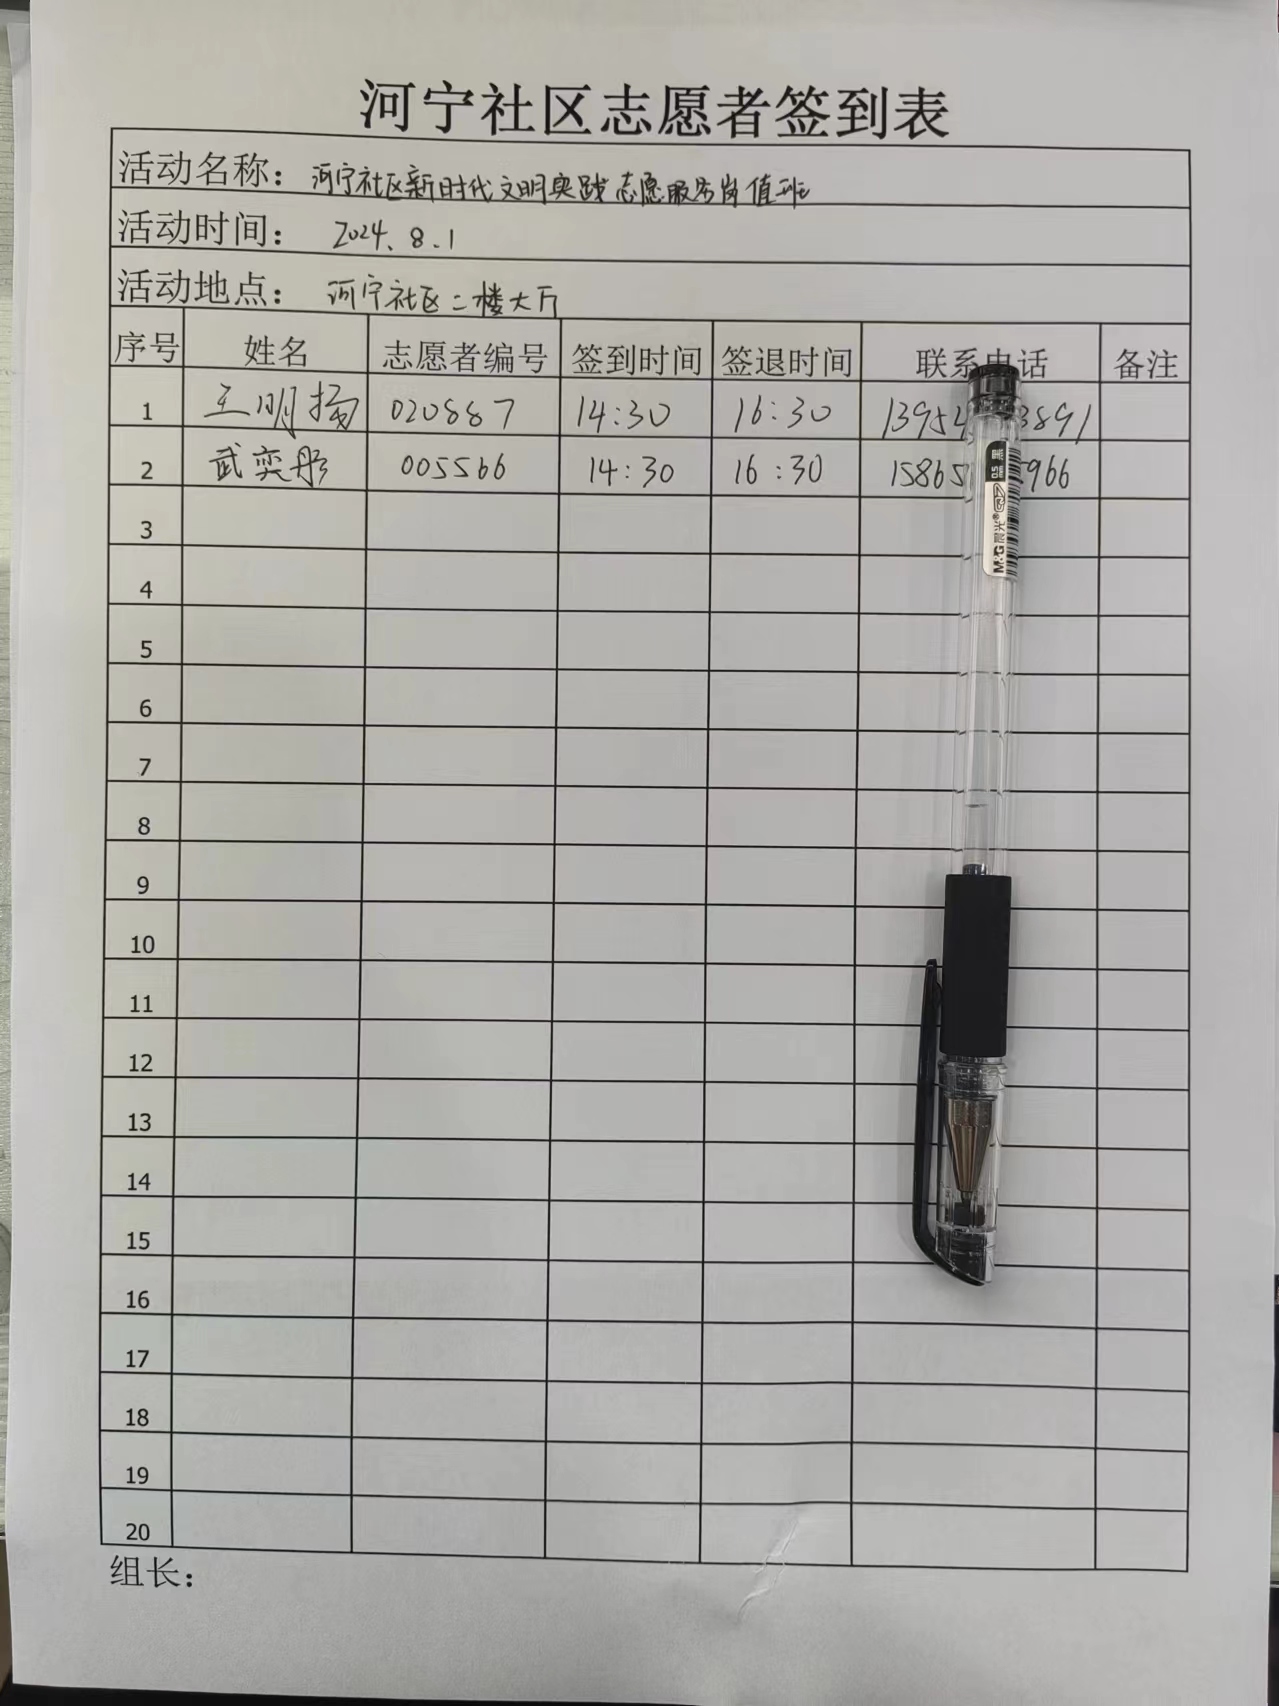 河宁社区志愿者签到表
活动名称：河宁社区新时代文明实践志愿服务岗值班
活动时间：2024.8.1
活动地点：河宁社区二楼大厅
序号 姓名 志愿者编号 签到时间 签退时间 联系电话 备注
1 王明扬 020887 14:30 16:30 1395 3891
2 武奕彤 005566 14:30 16:30 15865 966
3
4
5
6
7
8
9
10
11
12
13
14
15
16
17
18
19
20
组长：
0.5 黑
M&G 晨光®